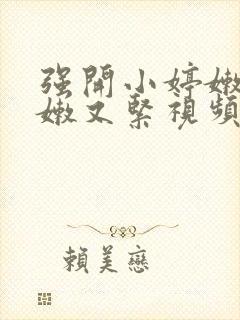 强開小婷嫩
嫩又緊視頻
賴美戀